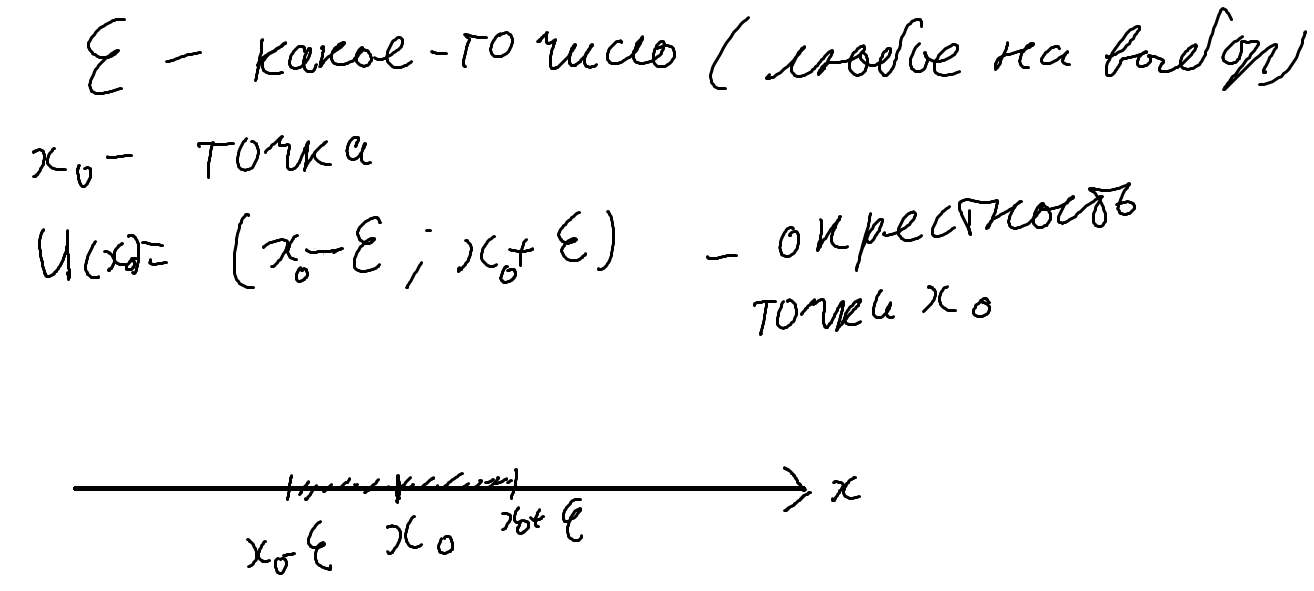 ε - какое-то число (любое на выбор)
x₀ - точка
U(x₀) = (x₀ - ε ; x₀ + ε) - окрестность
точки x₀
x
x₀ - ε x₀ x₀ + ε